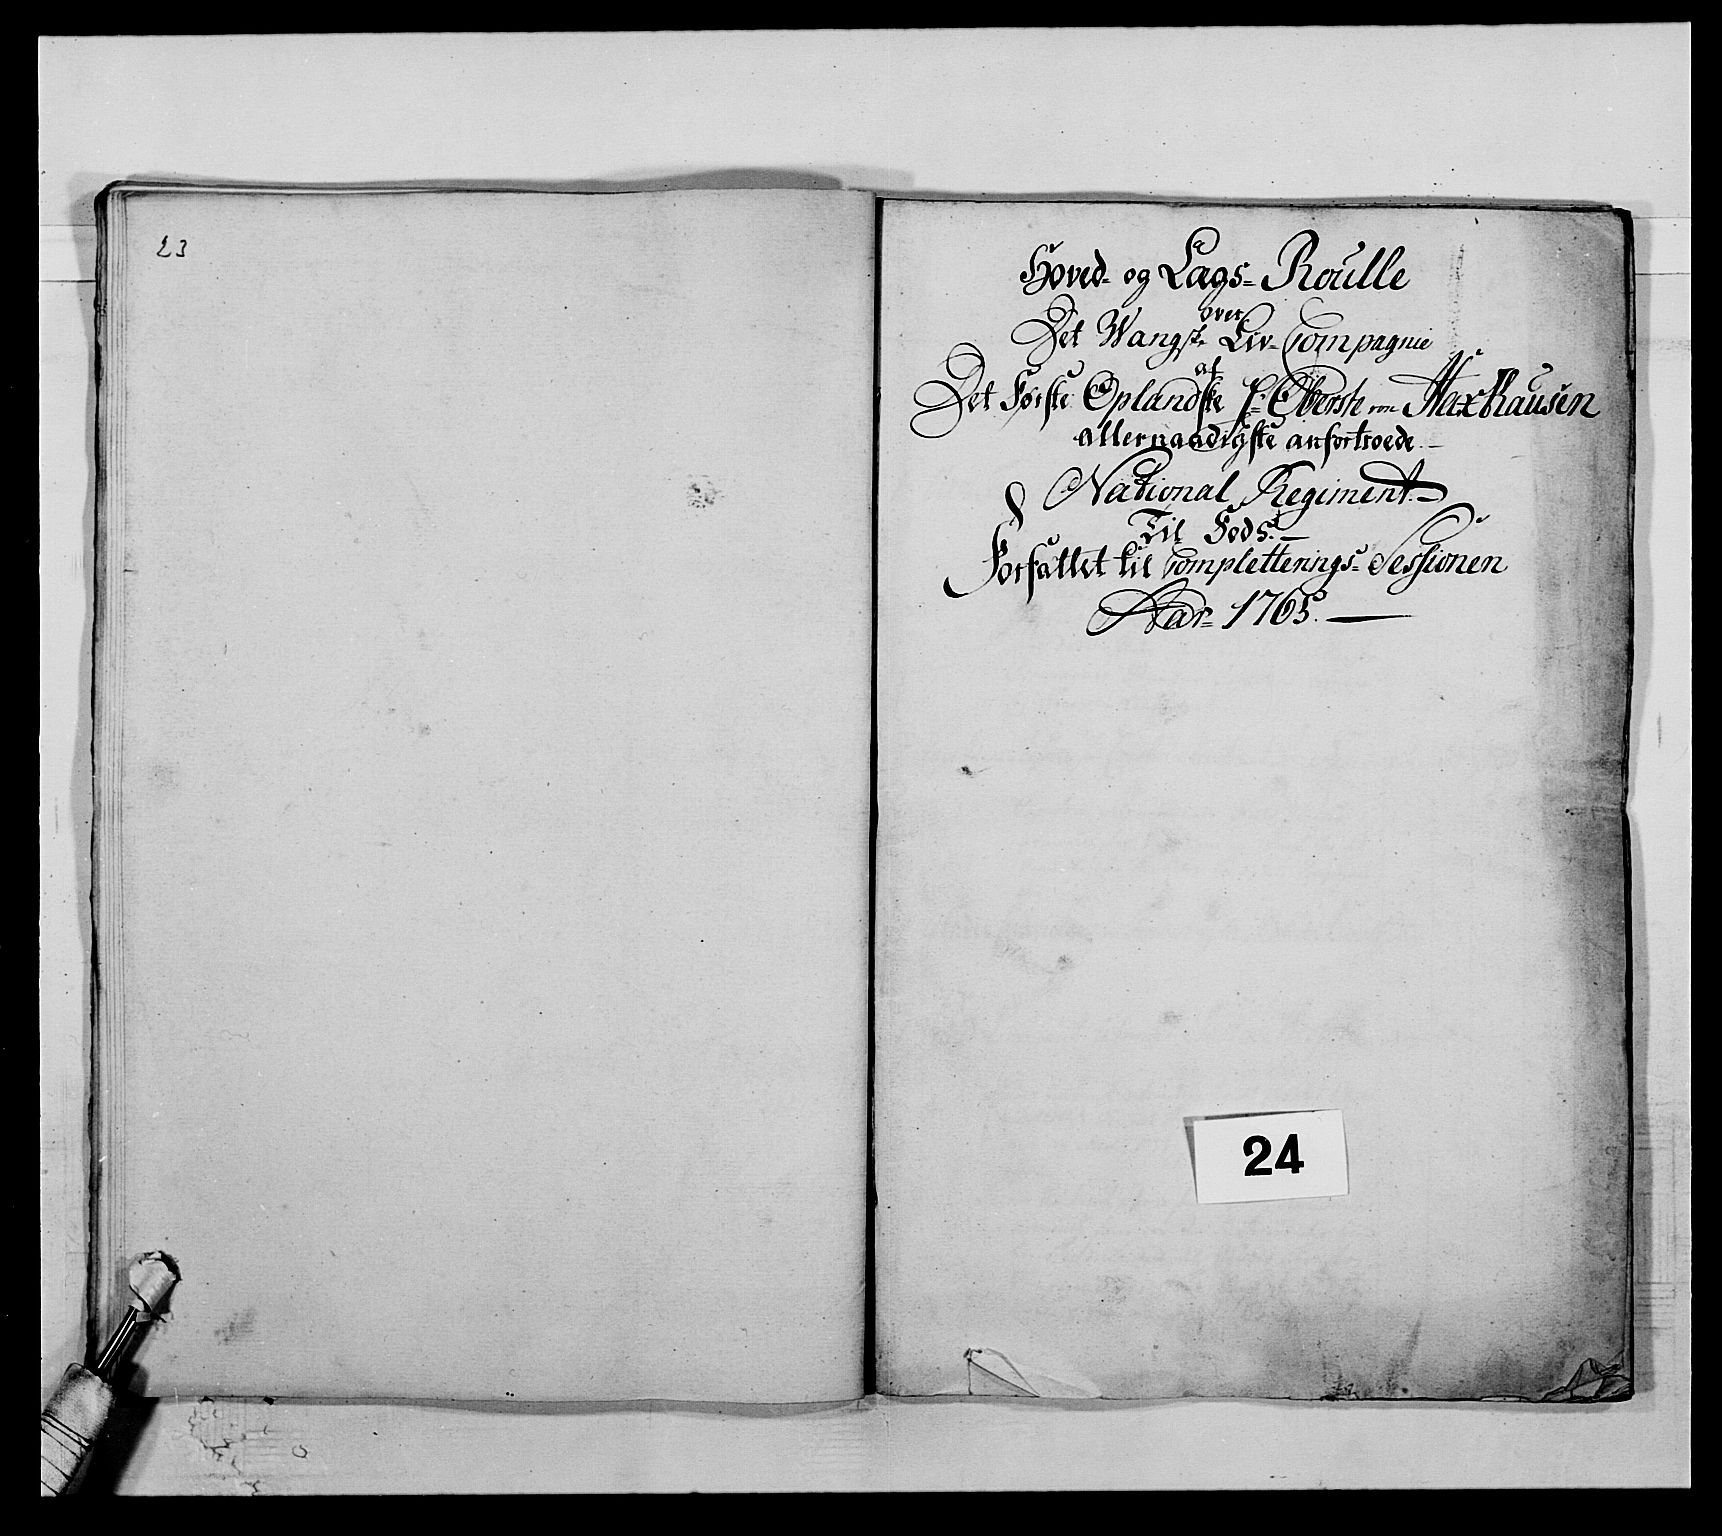 23
Hoved- og Lags- Roulle
over
Det Wangske Liv- Compagnie
af
Det Førske Oplandske H: Oberste von Haxthausen
allernaadigste anfortroede.
National Regiment.
Til Fods.
Forfattet til Completterings- Sessionen
Aar- 1765.
24